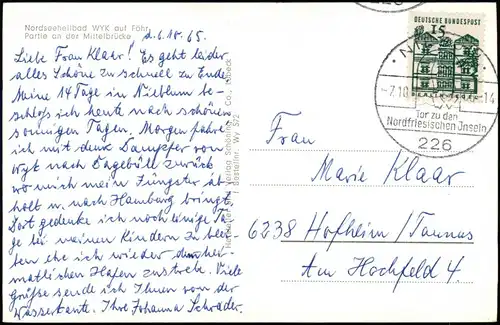 Nordseeheilbad WYK auf Föhr
Partie an der Mittelbrücke
d. 6.10.65.
Liebe Frau Klaar! Es geht leider
alles Schöne zu schnell zu Ende.
Meine 14 Tage in Nieblum be-
schloß ich heute nach schönen
sonnigen Tagen. Morgen fahre
ich mit dem Dampfer von
Wyk nach Dagebüll zurück
wo mich mein Jüngster ab-
holt u. nach Hamburg bringt.
Dort gedenke ich noch einige Ta-
ge bei meinen Kindern zu blei-
ben ehe ich wieder dem hei-
matlichen Hafen zustrebe. Viele
Grüße sende ich Ihnen von der
Wasserkante. Ihre Johanna Schrader.
Verlag Schöning & Co., Lübeck
Bestellnr. Wy 572
DEUTSCHE BUNDESPOST
15
-7.10.
-14
Tor zu den
Nordfriesischen Inseln
226
Frau
Marie Klaar
6238 Hofheim/Taunus
Am Hochfeld 4.